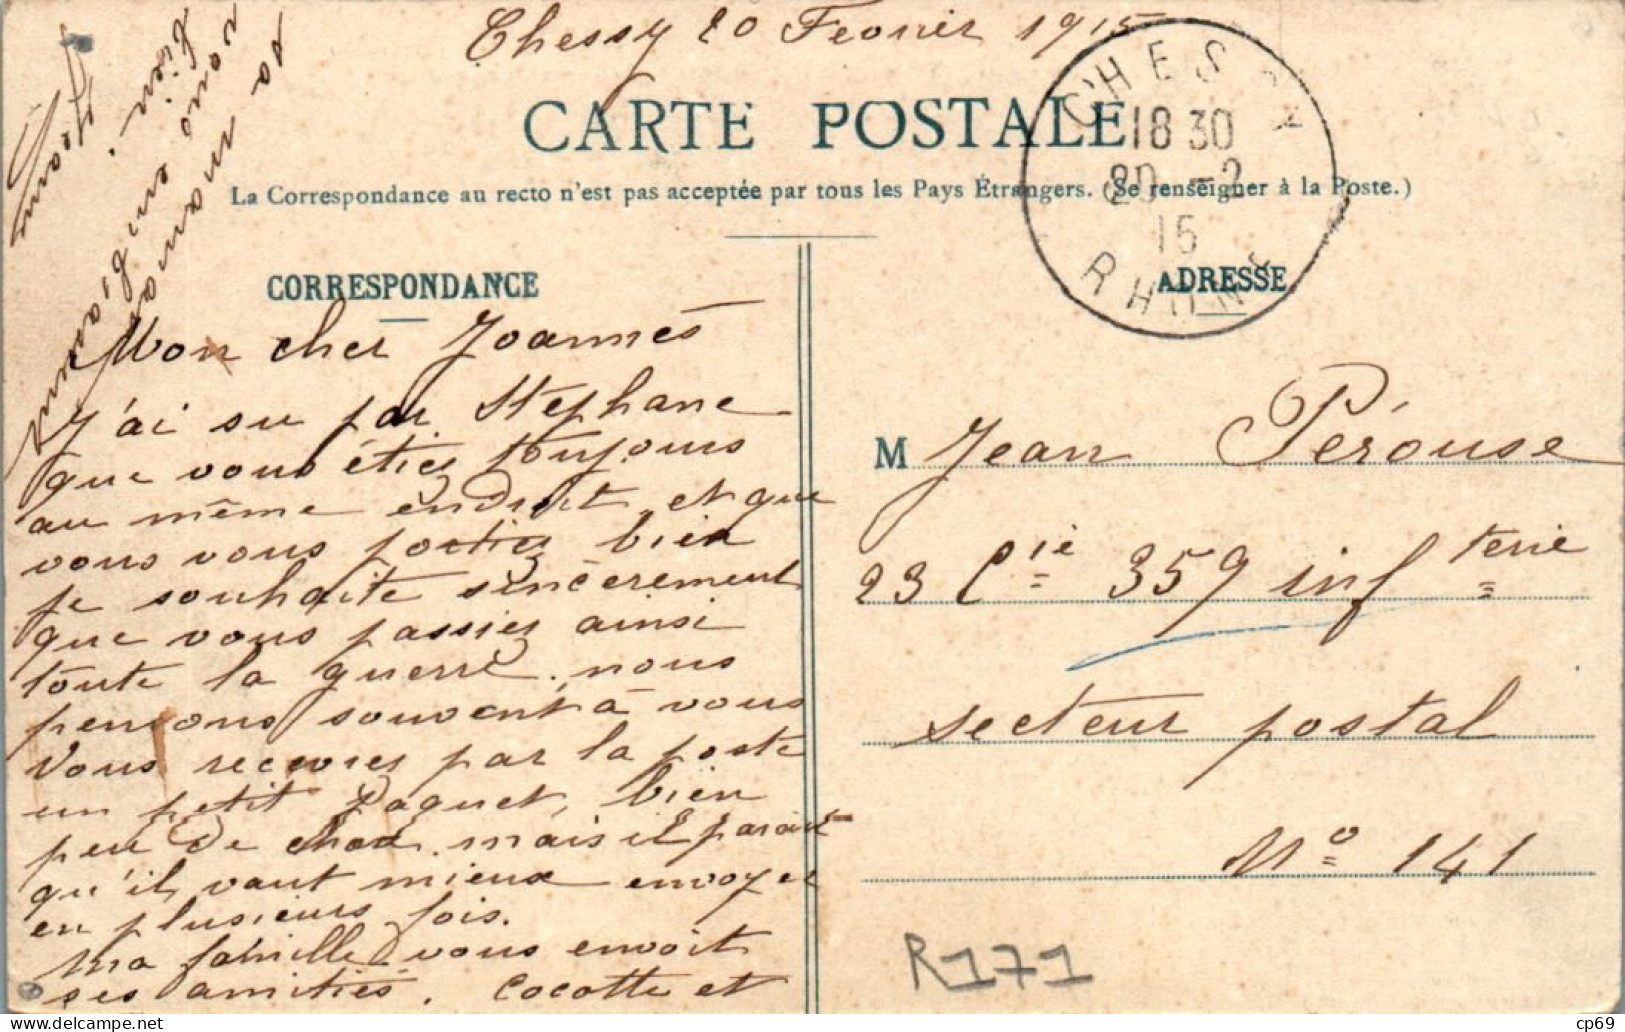 Chessy 20 Fevrier 1915
CARTE POSTALE
La Correspondance au recto n'est pas acceptée par tous les Pays Étrangers. (Se renseigner à la Poste.)
CHESSY
18 30
20 -2
15
RHONE
CORRESPONDANCE
Mon cher Joannès
J'ai su par Stephane
que vous étiez toujours
au même endroit et que
vous vous portiez bien
je souhaite sincèrement
que vous passiez ainsi
toute la guerre. nous
pensons souvent à vous
Vous recevrez par la poste
un petit Paquet, bien
peu de chose mais il parait
qu'il vaut mieux envoyer
en plusieurs fois.
Ma famille vous envoit
ses amitiés. Cocotte et
sa maman
vous envoi
bien
ADRESSE
M Jean Pérouse
23 Cie 359 infterie
secteur postal
No 141
R171
cp69